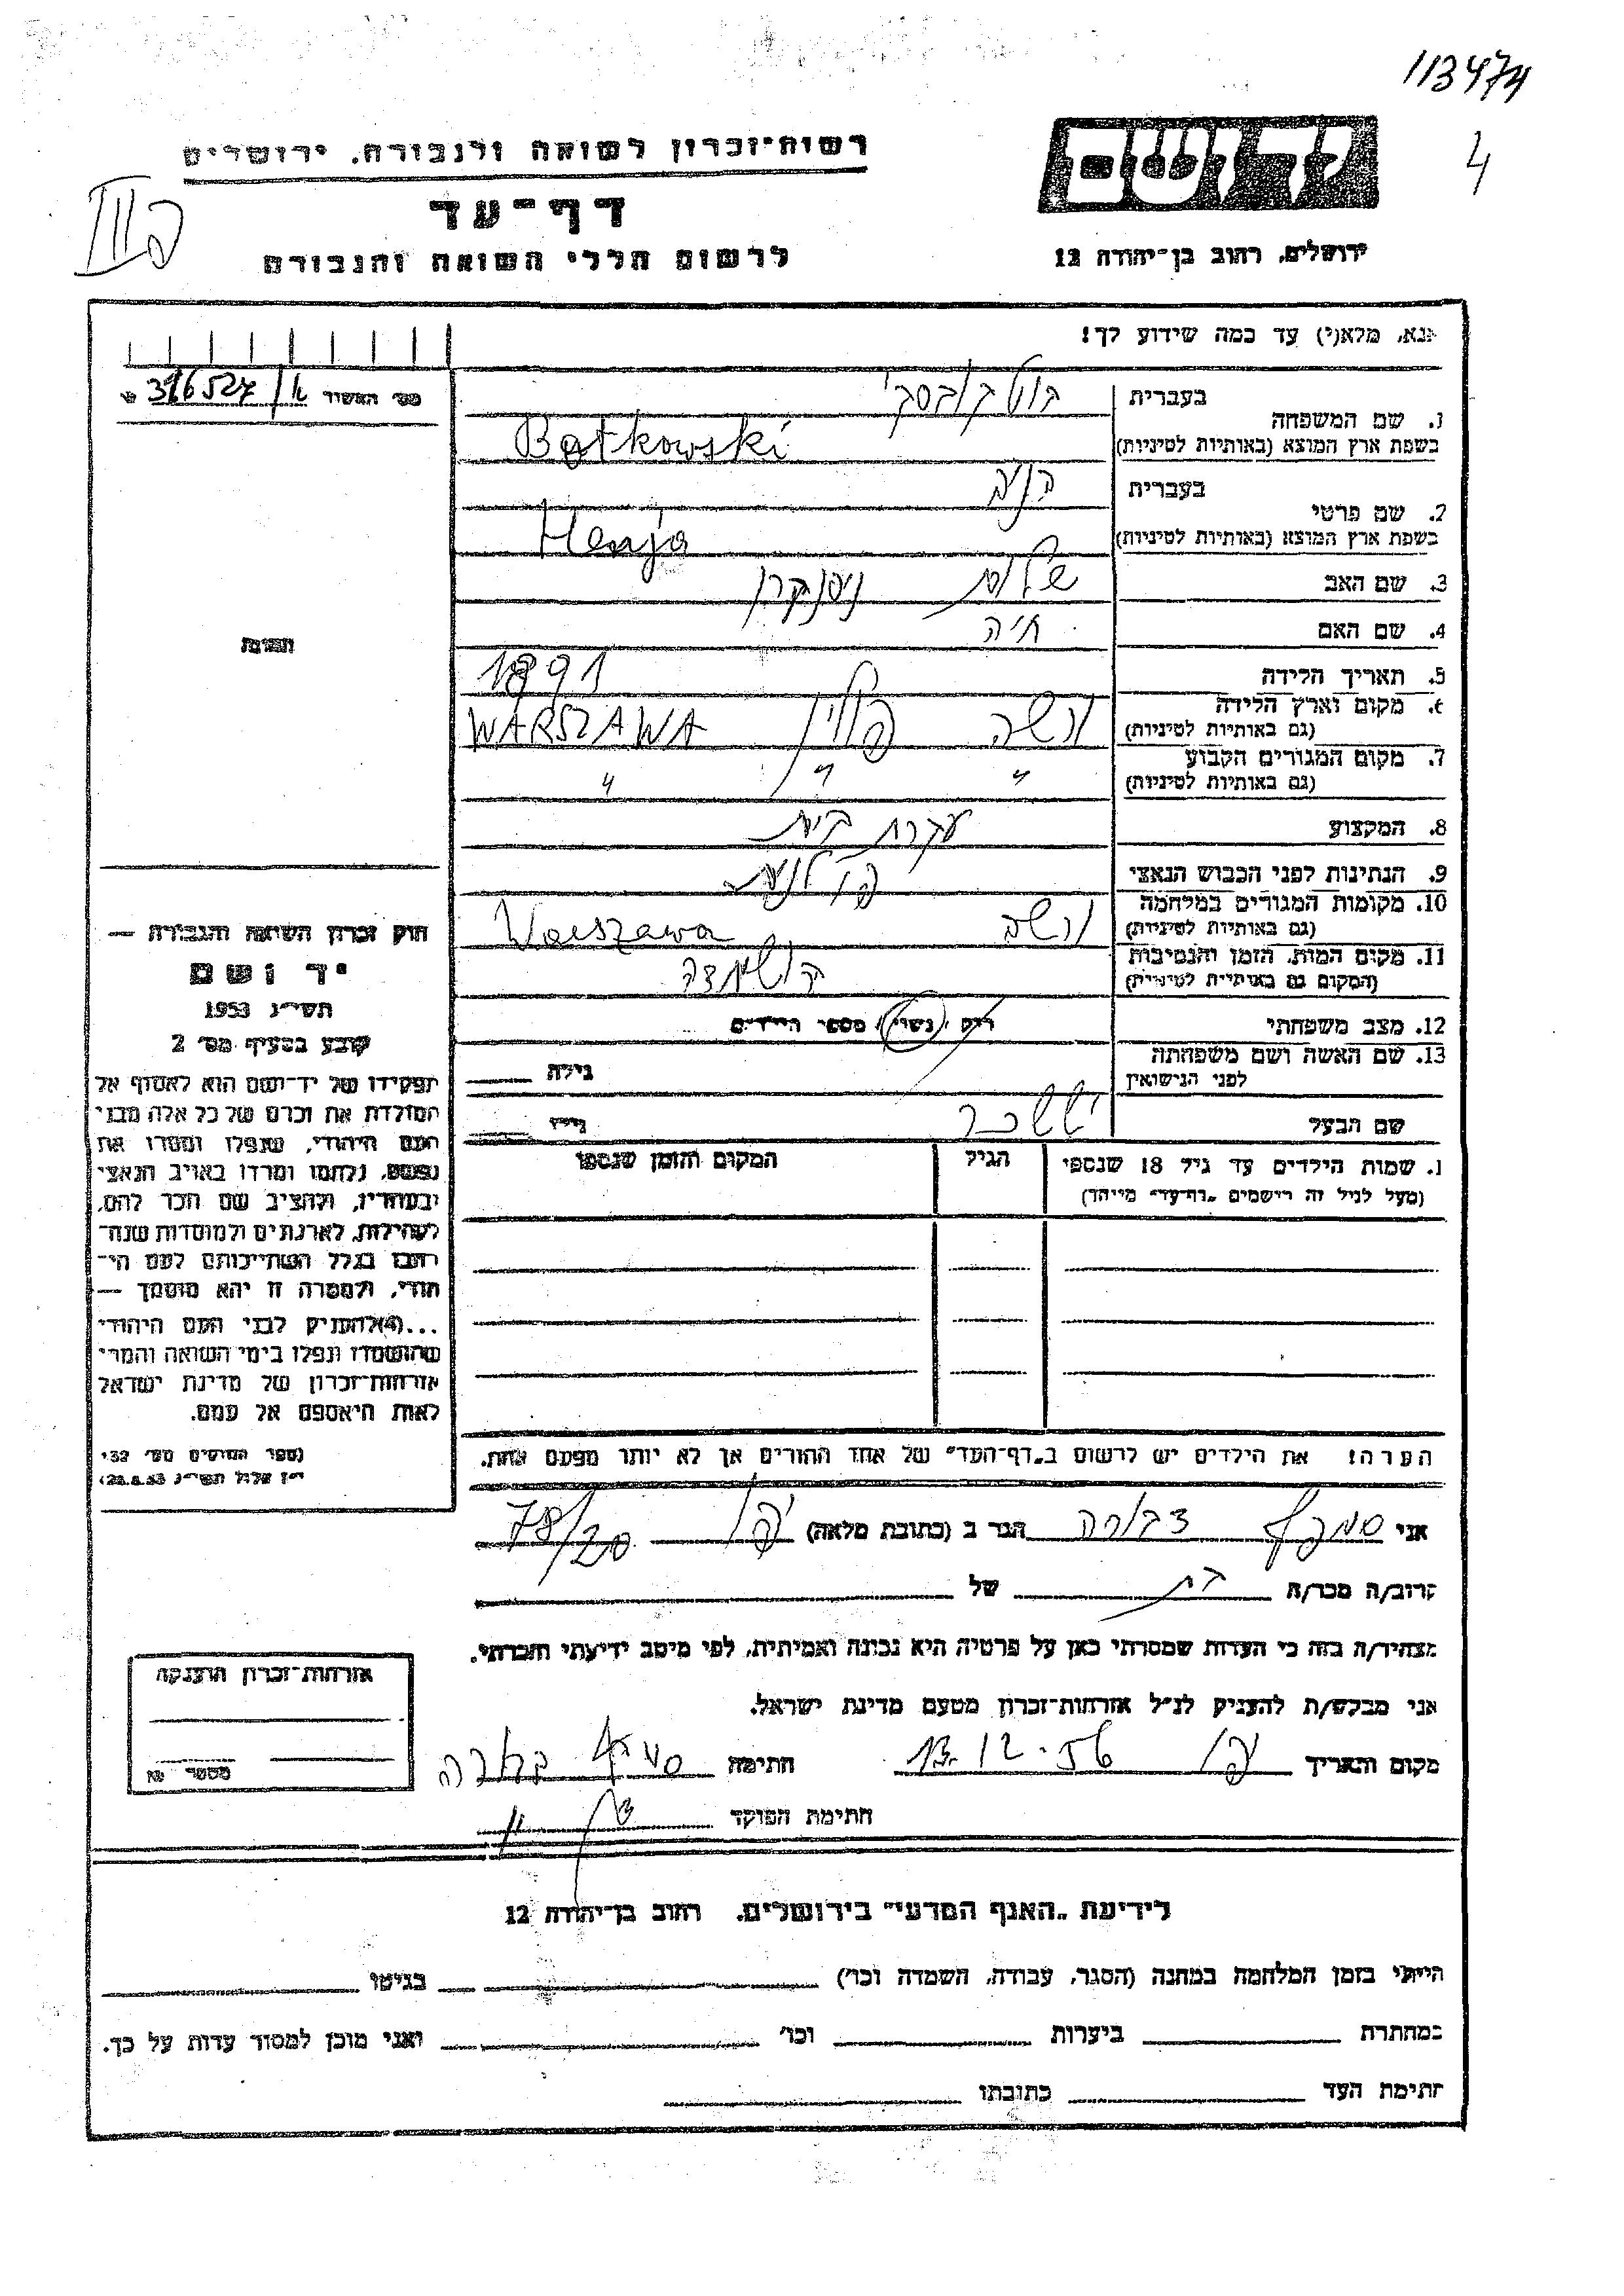 113474
4
רשות־זכרון לשואה ולגבורה, ירושלים
דף־עד
לרשום חללי השואה והגבורה
ירושלים, רחוב בן־יהודה 12
אנא, מלא(י) עד כמה שידוע לך!
מס׳ האשור
בעברית
1. שם המשפחה
בשפת ארץ המוצא (באותיות לטיניות) Batkowski
בעברית הניה
2. שם פרטי
בשפת ארץ המוצא (באותיות לטיניות) Henja
3. שם האב שלום
4. שם האם חיה
5. תאריך הלידה 1891
6. מקום וארץ הלידה ורשה פולין WARSZAWA
(גם באותיות לטיניות)
7. מקום המגורים הקבוע " " "
(גם באותיות לטיניות)
8. המקצוע עקרת בית
9. הנתינות לפני הכבוש הנאצי פולנית
10. מקומות המגורים במלחמה ורשה Warszawa
(גם באותיות לטיניות)
11. מקום המות, הזמן והנסיבות הושמדה
(המקום גם באותיות לטיניות)
12. מצב משפחתי רוק / נשוי / מספר הילדים
13. שם האשה ושם משפחתה גילה
לפני הנישואין
שם הבעל יששכר גילו
תמונה
חוק זכרון השואה והגבורה —
יד ושם
תשי״ג 1953
קובע בסעיף מס׳ 2
תפקידו של יד־ושם הוא לאסוף אל
המולדת את זכרם של כל אלה מבני
העם היהודי, שנפלו ומסרו את
נפשם, נלחמו ומרדו באויב הנאצי
ובעוזריו, ולהציב שם וזכר להם,
לקהילות, לארגונים ולמוסדות שנח־
רבו בגלל השתייכותם לעם הי־
הודי, ולמטרה זו יהא מוסמך —
...(4) להעניק לבני העם היהודי
שהושמדו ונפלו בימי השואה והמרי
אזרחות־זכרון של מדינת ישראל
לאות היאספם אל עמם.
(ספר החוקים מס׳ 132
י״ז אלול תשי״ג 28.8.53)
1. שמות הילדים עד גיל 18 שנספו הגיל המקום והזמן שנספו
(מעל לגיל זה רישמים „דף־עד״ מייוחד)
הערה! את הילדים יש לרשום ב„דף־העד״ של אחד ההורים אך לא יותר מפעם אחת.
אני הגר ב (כתובת מלאה) יפו 78/20
קרוב/ה מכר/ה בת של
מצהיר/ה בזה כי העדות שמסרתי כאן על פרטיה היא נכונה ואמיתית, לפי מיטב ידיעתי והכרתי.
אני מבקש/ת להעניק לנ״ל אזרחות־זכרון מטעם מדינת ישראל.
מקום ותאריך יפו 13.12.56 חתימה
חתימת הפוקד
אזרחות־זכרון הוענקה
מספר
לידיעת „האגף המדעי״ בירושלים, רחוב בן־יהודה 12
הייתי בזמן המלחמה במחנה (הסגר, עבודה, השמדה וכו׳) בגיטו
במחתרת ביערות וכו׳ ואני מוכן למסור עדות על כך.
חתימת העד כתובתו